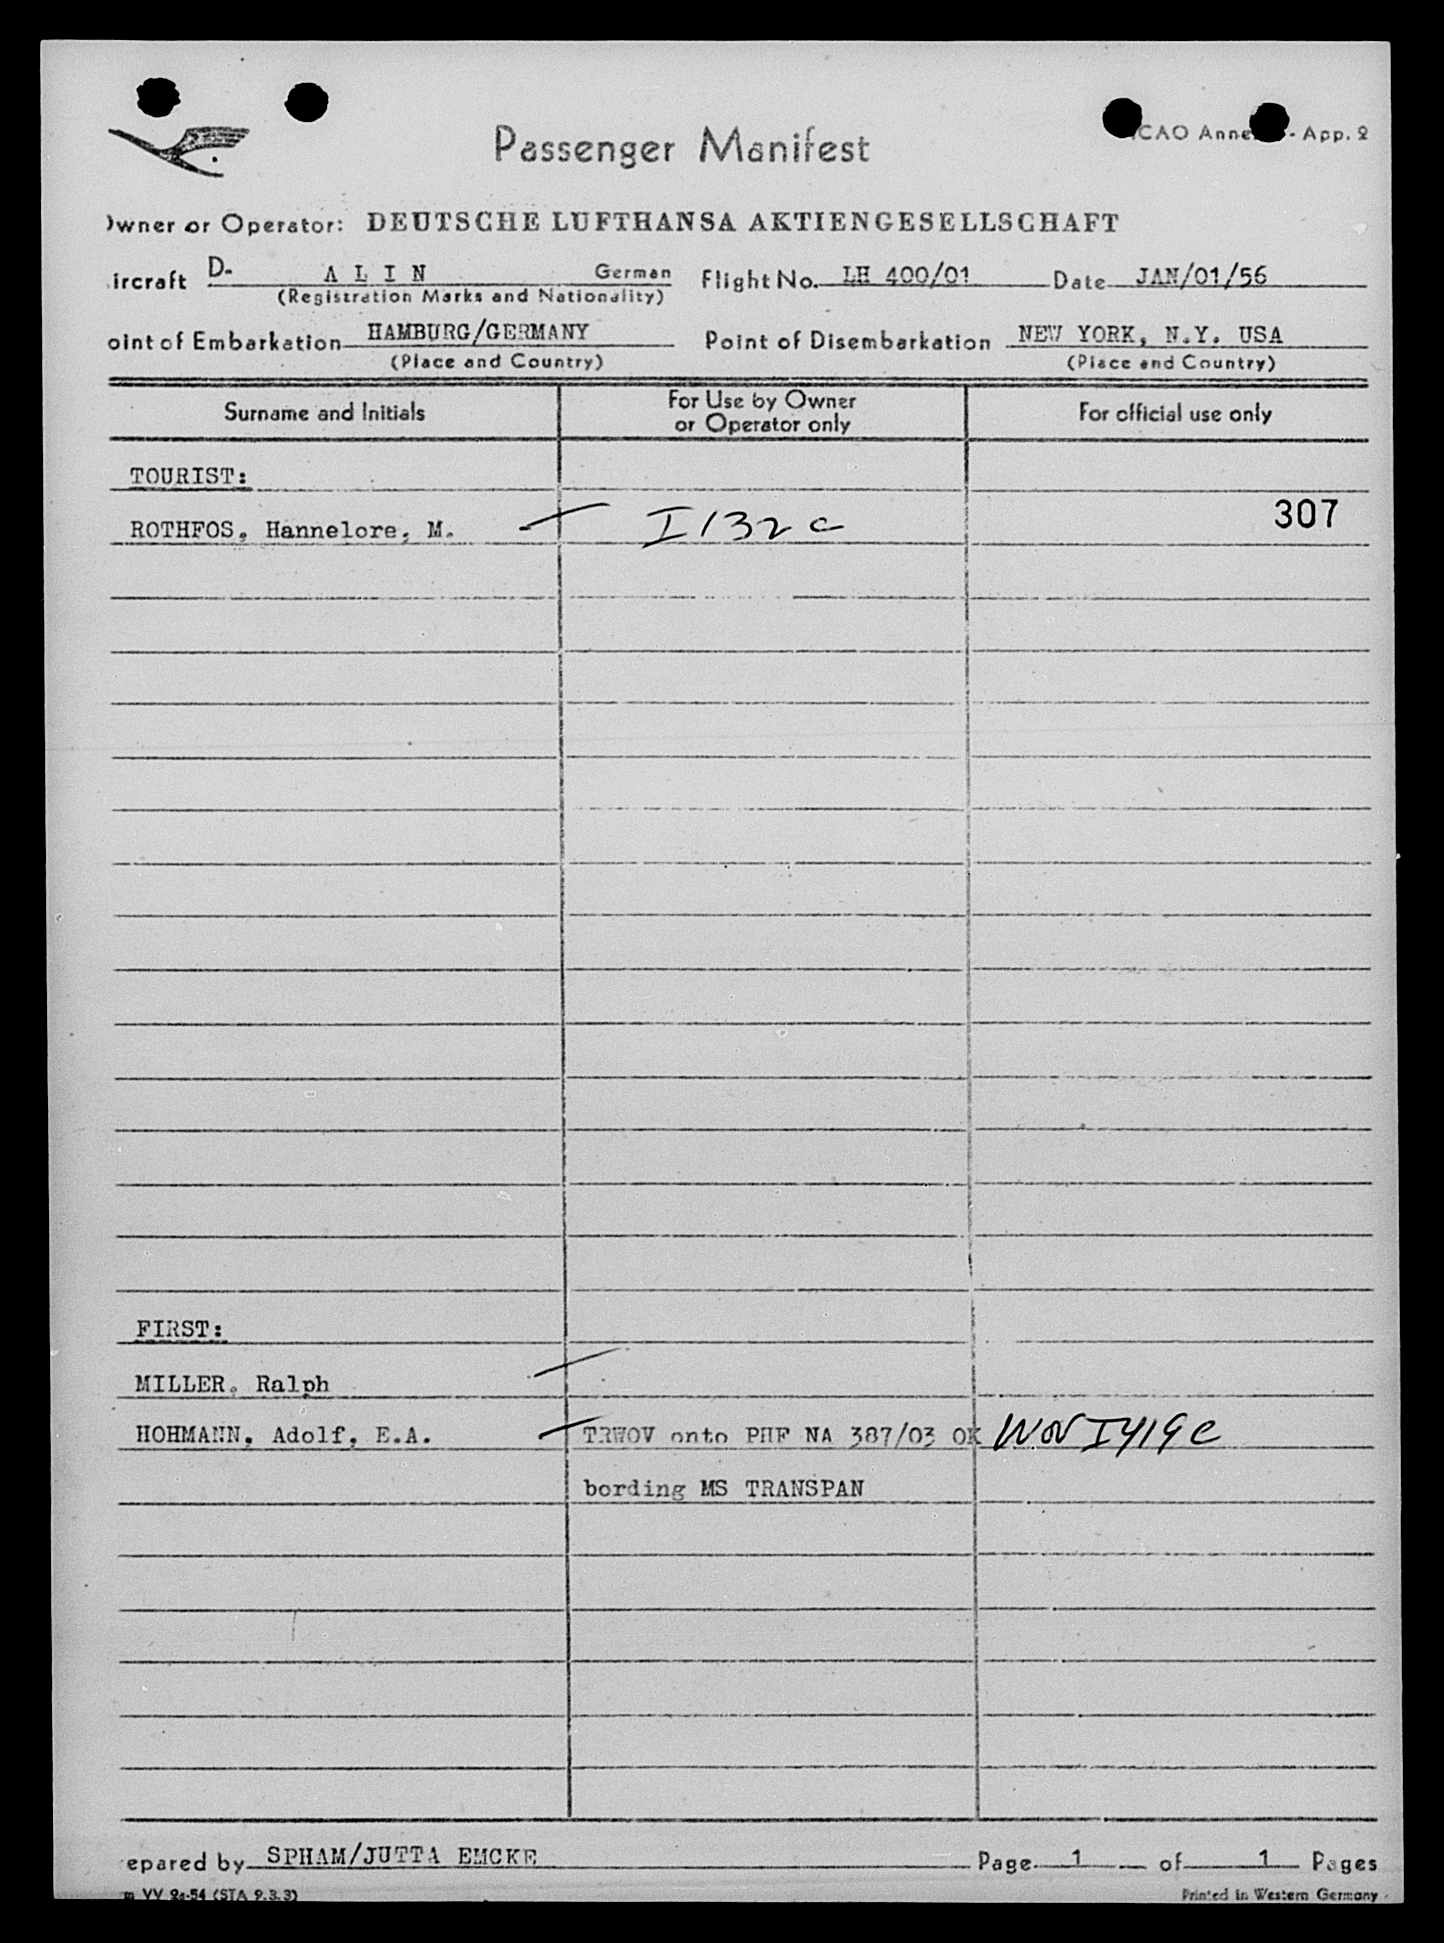 Passenger Manifest
CAO Anne - App. 2
wner or Operator: DEUTSCHE LUFTHANSA AKTIENGESELLSCHAFT
ircraft D- A L I N German Flight No. LH 400/01 Date JAN/01/56
(Registration Marks and Nationality)
oint of Embarkation HAMBURG/GERMANY Point of Disembarkation NEW YORK, N.Y. USA
(Place and Country) (Place and Country)
Surname and Initials For Use by Owner or Operator only For official use only
TOURIST:
307
ROTHFOS, Hannelore, M. I 132 c
FIRST:
MILLER, Ralph
HOHMANN, Adolf, E.A. TRWOV onto PHF NA 387/03 OK WOV I419 c
bording MS TRANSPAN
epared by SPHAM/JUTTA EMCKE Page 1 of 1 Pages
m VV 9a-54 (STA 9.3.3) Printed in Western Germany